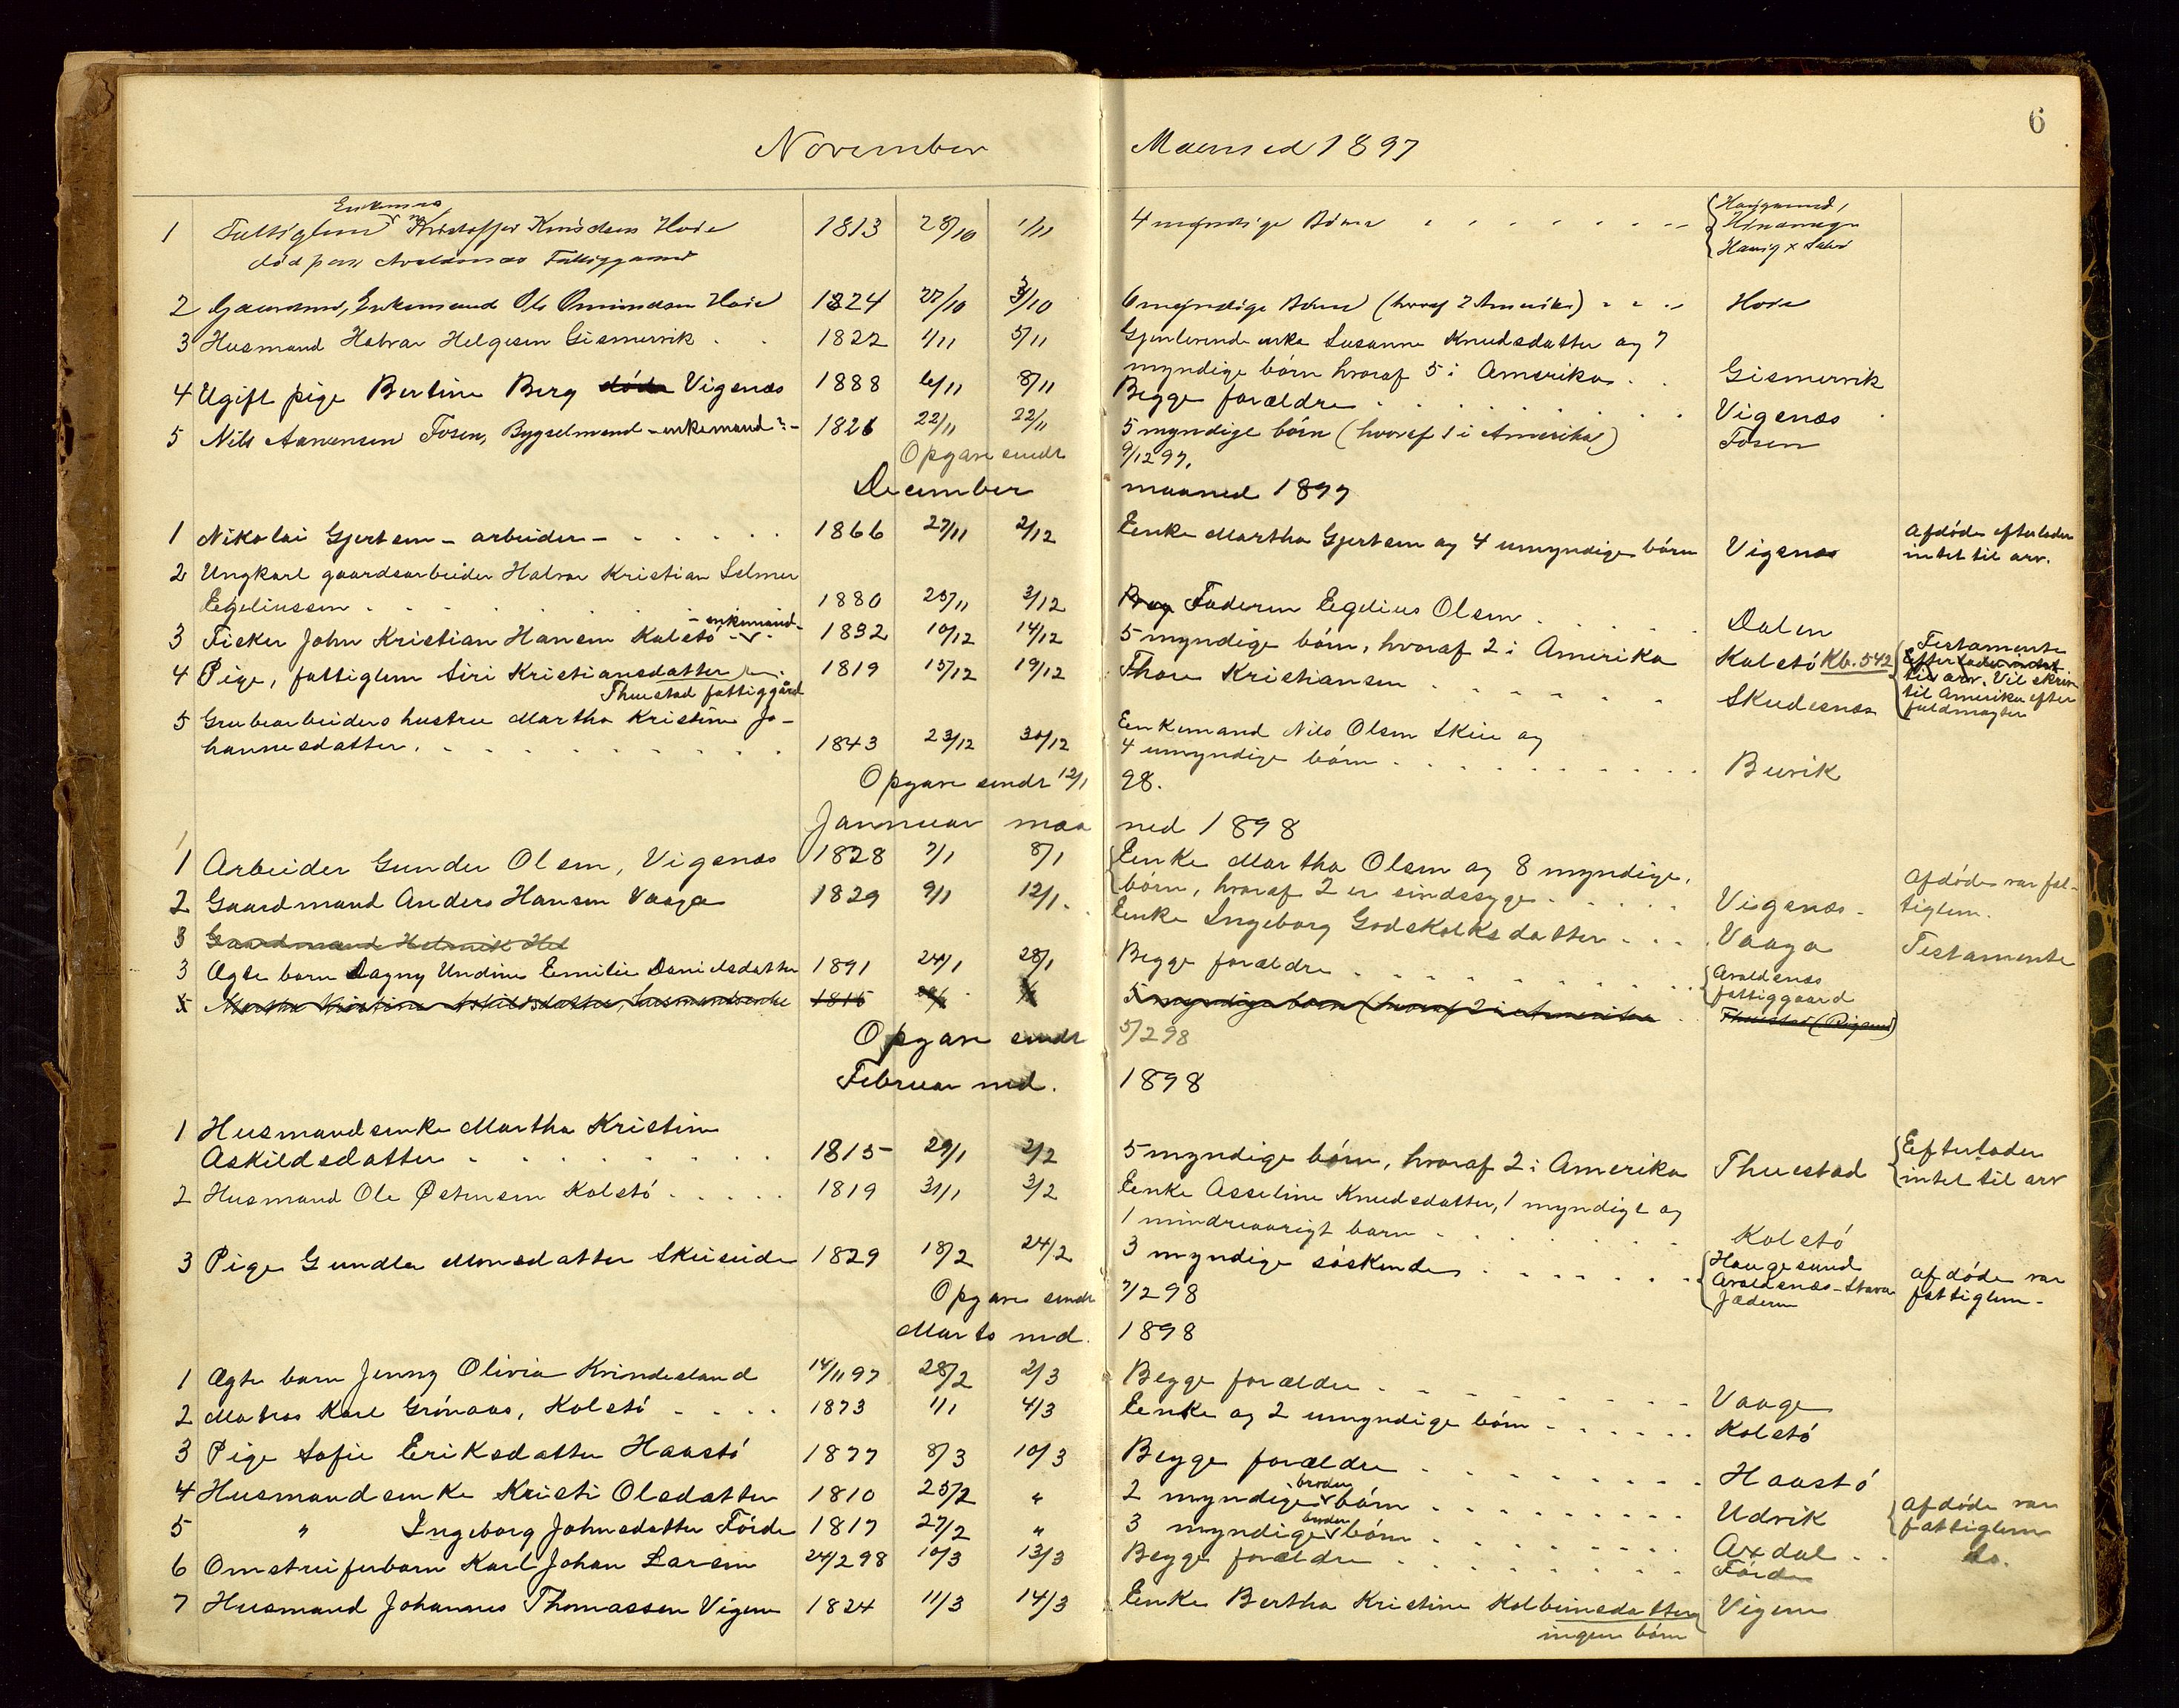 6
November Maaned 1897
Enkemand
1 Fattiglem Kristoffer Knudsen Hoie 1813 28/10 1/11 4 myndige Börn Haugesund,
död paa Avaldsnes Fattiggaard
2 Gaardmd, Enkemand Ole Omundsen Hoie 1824 27/10 3/10 6 myndige Börn (hvoraf 2 Amerika) Hoie
3 Husmand Halvar Helgesen Gismervik 1822 1/11 5/11 Gjenlevende enke Susanne Knudsdatter og 7
myndige börn hvoraf 5 i Amerika Gismervik
4 Ugift pige Bertine Berg döde Vigsnæs 1888 6/11 8/11 Begge forældre Vigsnæs
5 Nils Aanensen Fosen, Bygselmand - enkemand? - 1826 22/11 22/11 5 myndige börn (hvoraf 1 i Amerika) Fosen
Opgave sendt 9/12 97.
December maaned 1897
1 Nikolai Gjertsen - arbeider - 1866 27/11 2/12 Enke Martha Gjertsen og 4 umyndige börn Vigsnæs Afdöde efterlader
intet til arv.
2 Ungkarl gaardsarbeider Halvor Kristian Selmer
Egeliussen 1880 25/11 3/12 Beg Faderen Egelius Olsen Dalen
- enkemand -
3 Fisker John Kristian Hansen Kolstö 1832 10/12 14/12 5 myndige börn, hvoraf 2 i Amerika Kolstö Kb. 542 Testamente
4 Pige, fattiglem Siri Kristiansdatter 1819 15/12 19/12 Thore Kristiansen Skudesnæs Efterlader intet
til arv. Vil skrive
til Amerika efter
fuldmagter
Thuestad fattiggård
5 Grubearbeiders hustru Martha Kristine Jo-
hannesdatter. 1843 23/12 30/12 Enkemand Nils Olsen Skeie og
4 umyndige börn Buvik
Opgave sendt 12/1 98.
Jannuar maaned 1898
1 Arbeider Gunder Olsen, Vigsnæs 1828 7/1 8/1 Enke Martha Olsen og 8 myndige,
börn, hvoraf 2 er sindssyge Vigsnæs Afdöde var fat-
tiglem.
2 Gaardmand Anders Hansen Vaage 1829 9/1 12/1 Enke Ingeborg Godskalksdatter Vaage Testamente
3 Gaardmand Helmik Hel
3 Ægte barn Dagny Undine Emilie Danielsdatter 1891 24/1 28/1 Begge forældre Avaldsnæs
fattiggaard
5 Martha Kristine Askildsdatter, husmandsenke 1815 5 myndige börn (hvoraf 2 i Amerika Thuestad
Opgave sendt 5/2 98
Februar md. 1898
1 Husmandsenke Martha Kristine
Askildsdatter 1815 29/1 2/2 5 myndige börn, hvoraf 2 i Amerika Thuestad Efterlader
intet til arv
2 Husmand Ole Østensen Kolstö 1819 31/1 3/2 Enke Asseline Knudsdatter, 1 myndigt og
1 mindreaarigt barn Kolstö
3 Pige Gundla Monsdatter Skeiseide 1829 18/2 24/2 3 myndige söskende Haugesund
Avaldsnæs - Stava
Jæderen
afdöde var
fattiglem -
Opgave sendt 7/2 98
Marts md. 1898
1 Ægte barn Jenny Olivia Kvindesland 14/11 97 28/2 2/3 Begge forældre Vaage
2 Matros Karl Grönaas, Kolstö 1873 1/1 4/3 Enke og 2 umyndige börn Kolstö
3 Pige Sofie Eriksdatter Haastö 1877 8/3 10/3 Begge forældre Haastö
4 Husmandsenke Kristi Olsdatter 1810 25/2 " 2 myndige broder börn Udvik Afdöde var
fattiglem
5 " Ingeborg Johnsdatter Förde 1817 27/2 " 3 myndige broder börn Axdal do.
6 Omstreiferbarn Karl Johan Larsen 24/2 98 10/3 13/3 Begge forældre Förde
7 Husmand Johannes Thomassen Vigene 1824 11/3 14/3 Enke Bertha Kristine Kolbeinsdatter Vigene
ingen börn